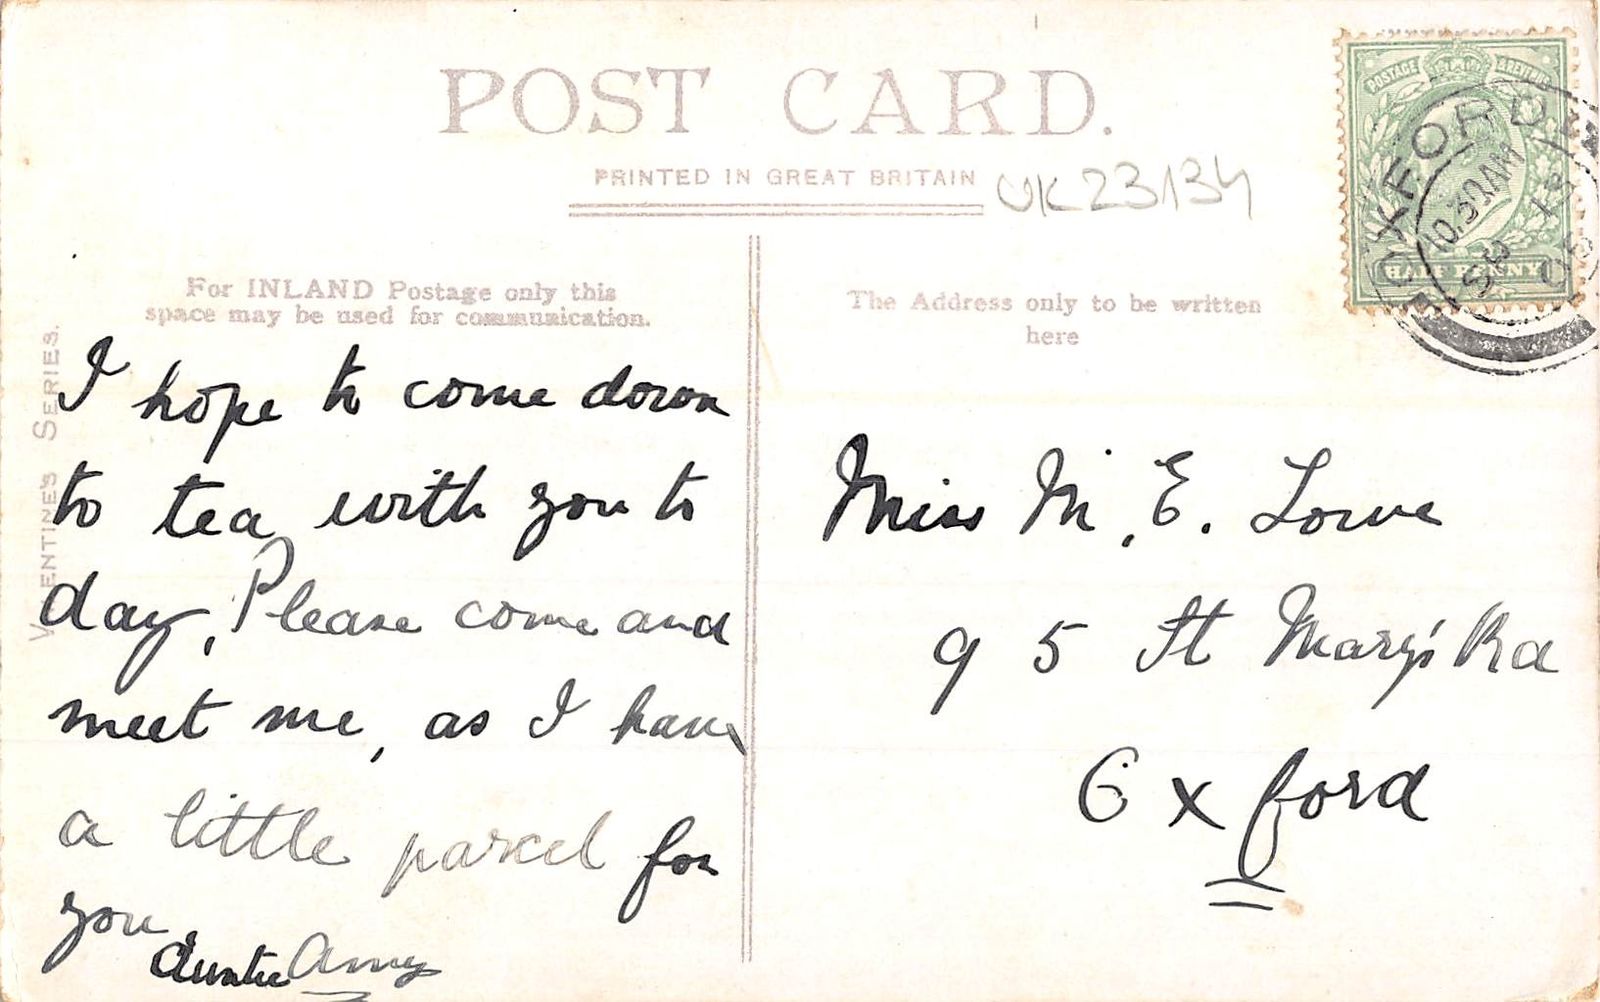 POST CARD.
PRINTED IN GREAT BRITAIN
UK23134
POSTAGE & REVENUE
HALF PENNY
OXFORD
10.30 AM
SP 13
05
For INLAND Postage only this
space may be used for communication.
The Address only to be written
here
VALENTINE'S SERIES.
I hope to come down
to tea with you to
day, Please come and
meet me, as I have
a little parcel for
you
Auntie Amy
Miss M. E. Lowe
95 St Mary's Rd
Oxford